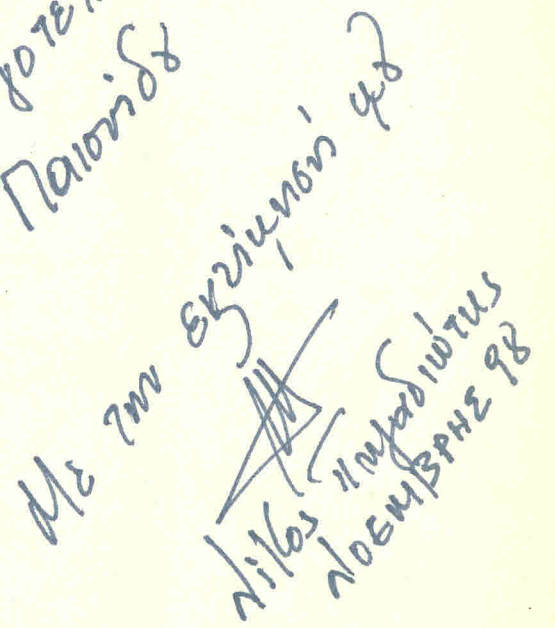 Παιονίδȣ
Με την εκτίμησή μȣ
Νίκος Πηγαδιώτης
ΝΟΕΜΒΡΗΣ 98